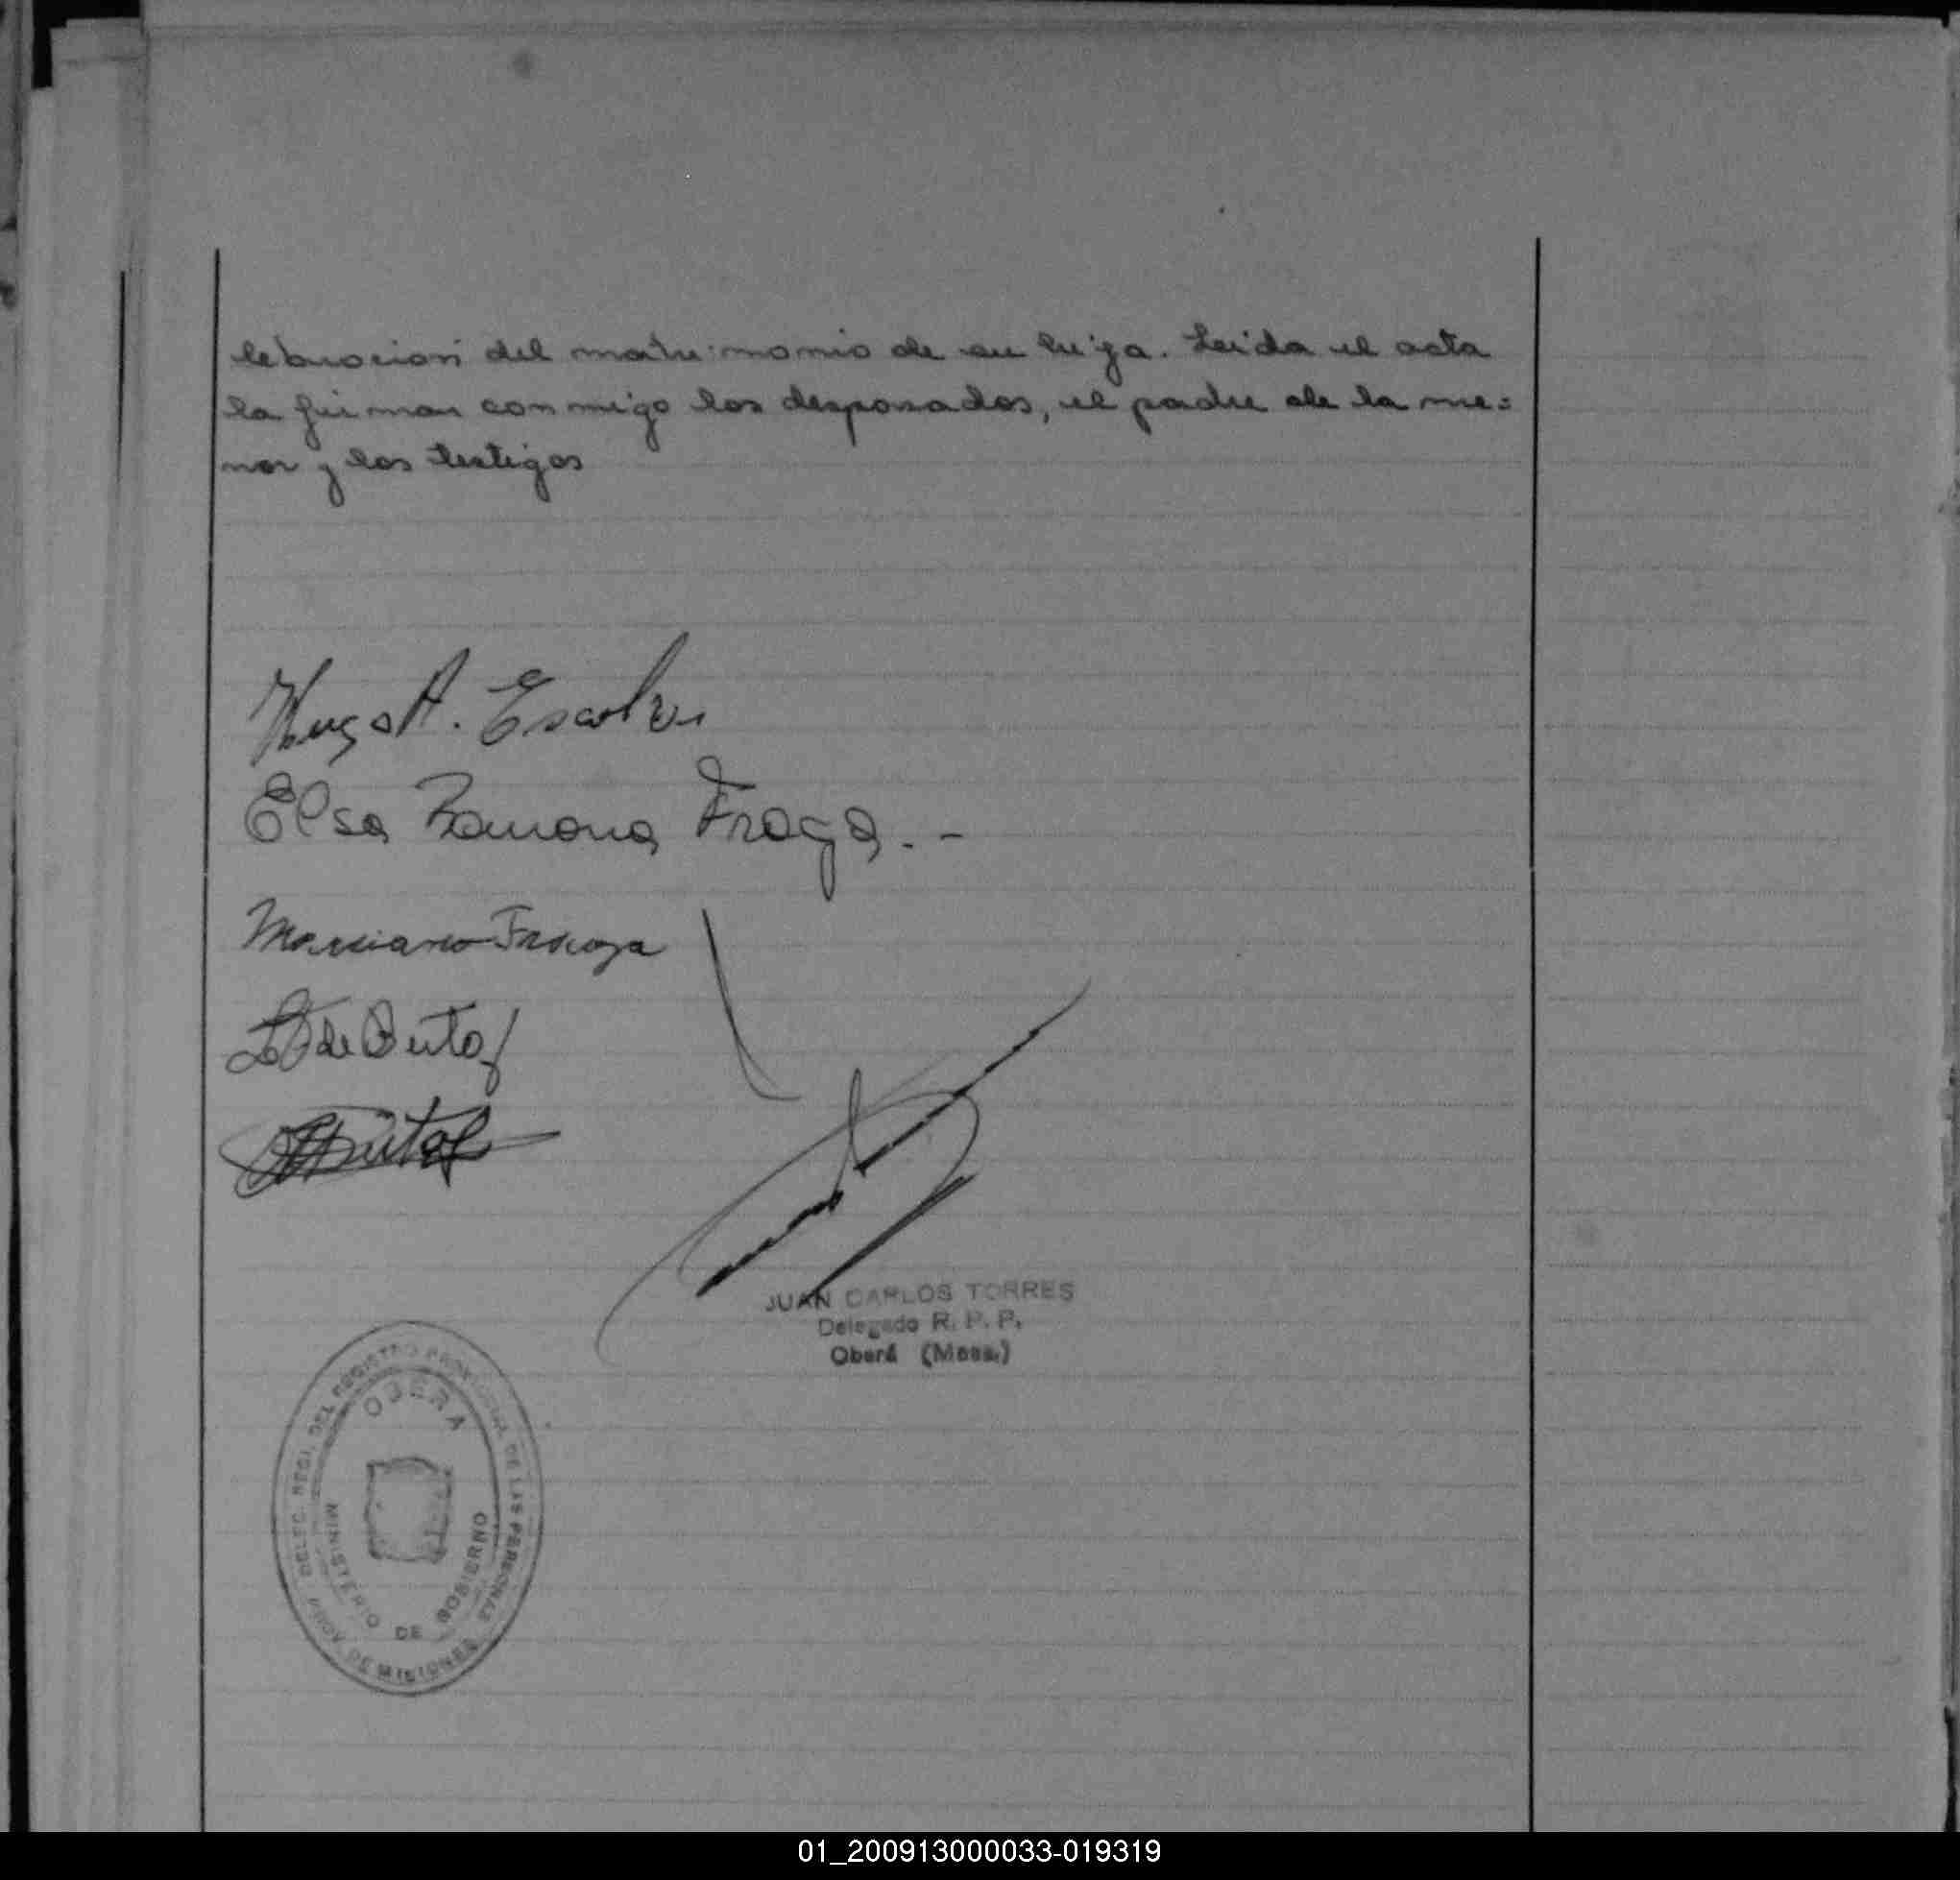 lebracion del matrimonio de su hija. Leida el acta
la firman conmigo los desposados, el padre de la me=
nor y los testigos
Hugo A.
Elsa Ramona Fraga.-
Marciano Fraga
JUAN CARLOS TORRES
Delegado R. P. P.
Oberá (Mnes.)
DELEG. REGI. DEL REGISTRO PROVINCIAL DE LAS PERSONAS
OBERA
MINISTERIO DE GOBIERNO
DE MISIONES
01_200913000033-019319